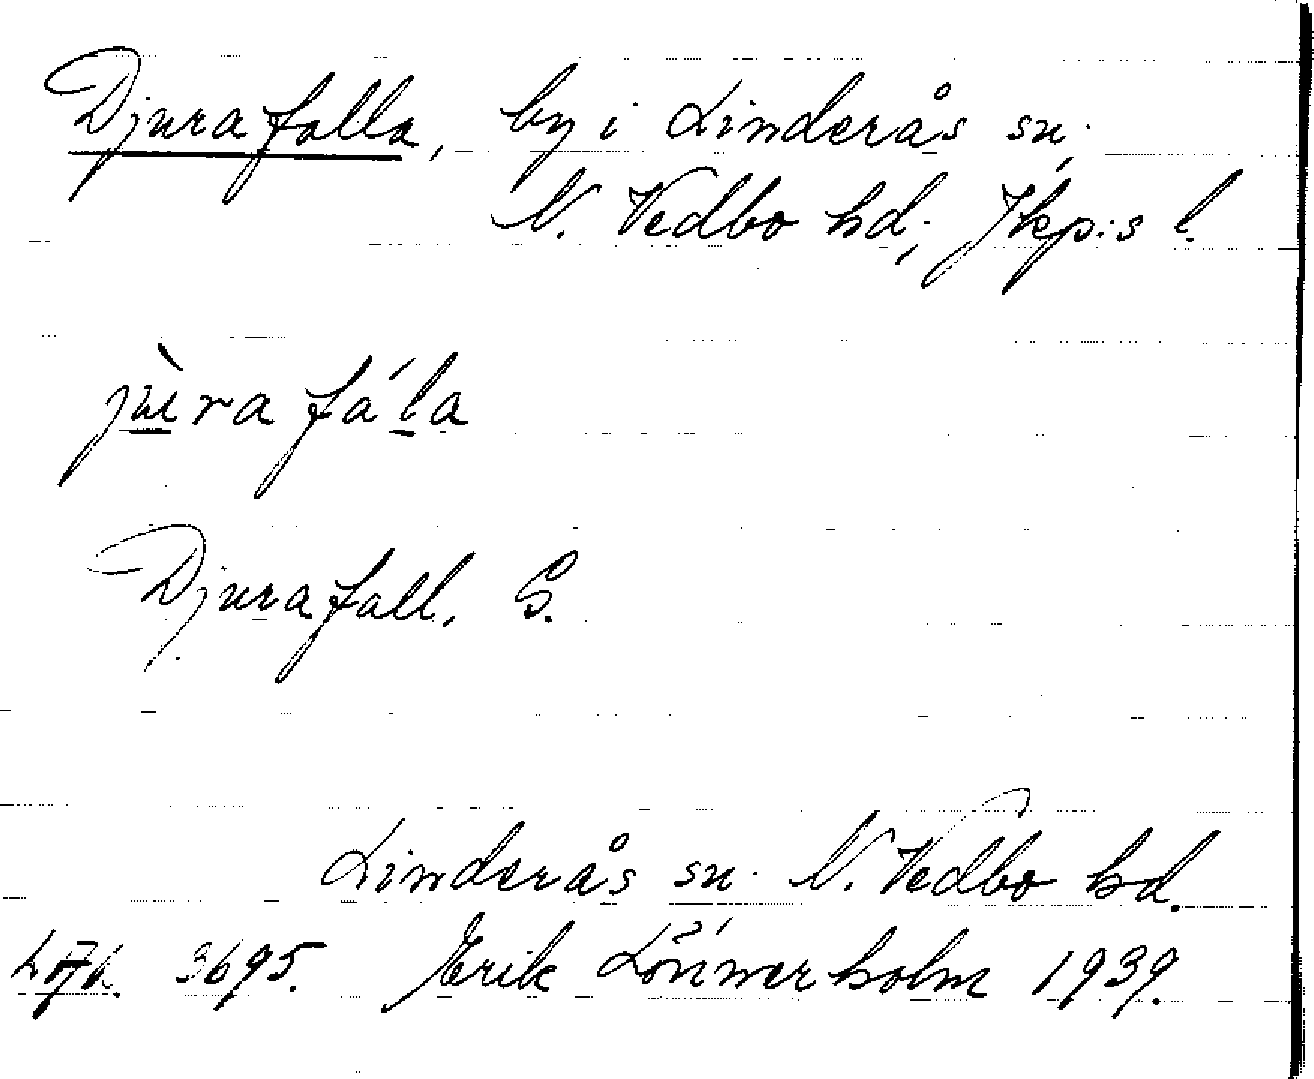 Djurafalla, by i Linderås sn,
N. Vedbo hd; Jkp:s l.
jùrafála
Djurafall. G.
Linderås sn. N. Vedbo hd.
3695. Erik Lönnerholm 1939.